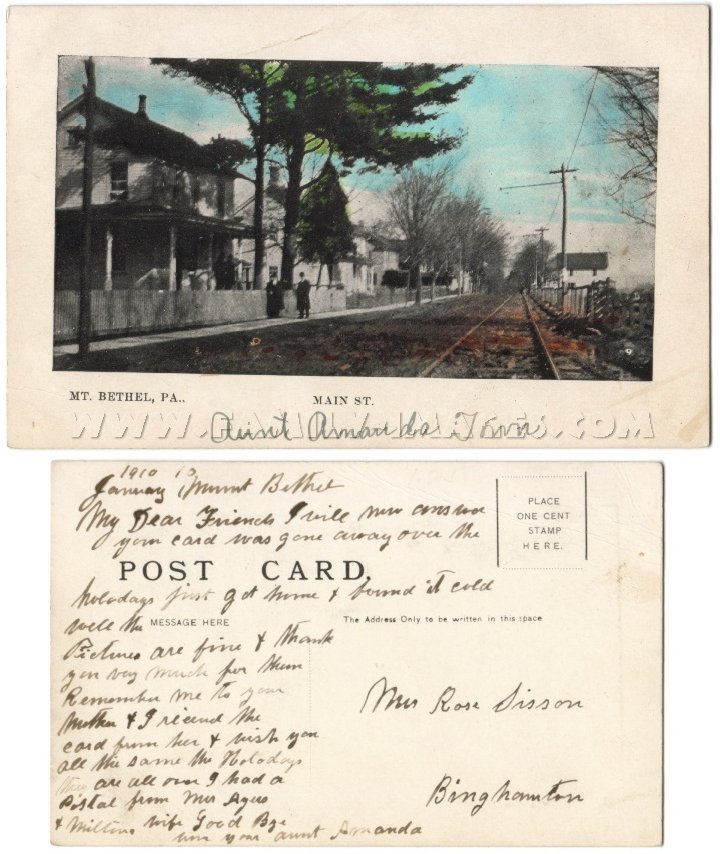 MT. BETHEL, PA..
MAIN ST.
Aunt Amanda Town
1910
January Mount Bethel
My Dear Friends I will now answer
your card was gone away over the
POST CARD.
holodays just got home & found it cold
well the
Pictures are fine & thank
you very much for them
Remember me to your
Mother & I recievd the
card from her & wish you
all the same the Holodays
are all over I had a
Postal from Mrs Ayers
& Miltons wife Good Bye
your aunt Amanda
MESSAGE HERE
The Address Only to be written in this space
PLACE
ONE CENT
STAMP
HERE.
Mrs Rose Sisson
Binghamton